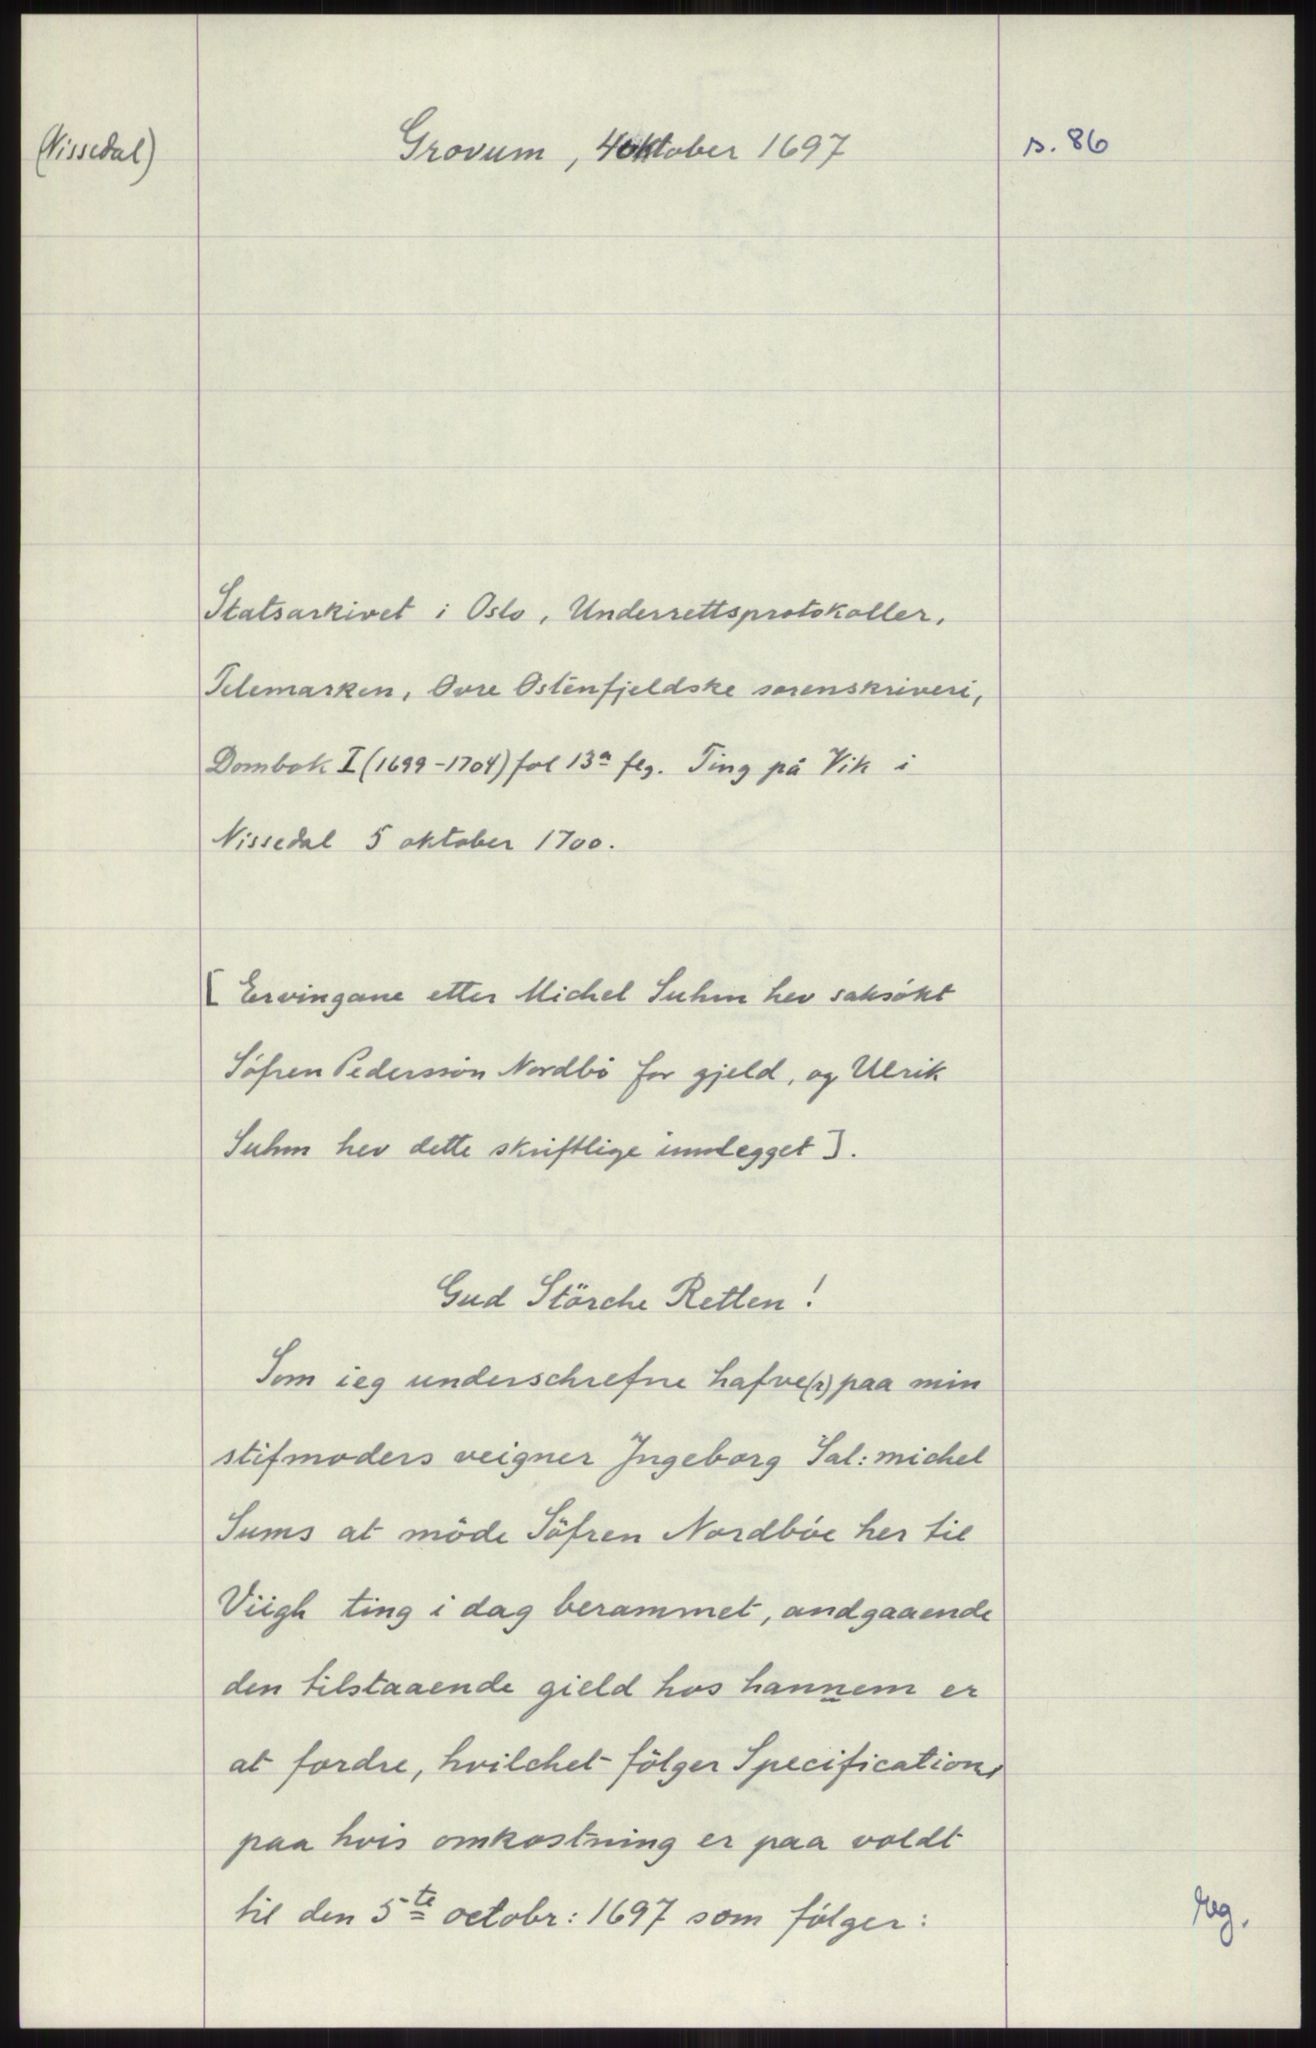 (Nissedal)
Grovum, 4 oktober 1697
s. 86
Statsarkivet i Oslo, Underrettsprotokoller,
Telemarken, Øvre Østenfjeldske sorenskriveri,
Dombok I (1699-1704) fol 13a flg. Ting på Vik i
Nissedal 5 oktober 1700.
[ Ervingane etter Michel Suhm hev saksókt
Sófren Pederssön Nordbó for gjeld, og Ulrik
Suhm hev dette skriftlige innlegget ].
Gud Störche Retten!
Som ieg underschrefne hafve(r) paa min
stifmoders veigner Jngeborg Sal: michel
Sums at möde Söfren Nordbóe her til
Viigh ting i dag berammet, andgaaende
den tilstaaende gield hos hannem er
at fordre, hvilchet fölger Specification,
paa hvis omkostning er paa voldt
til den 5te octobr: 1697 som fólger:
reg.